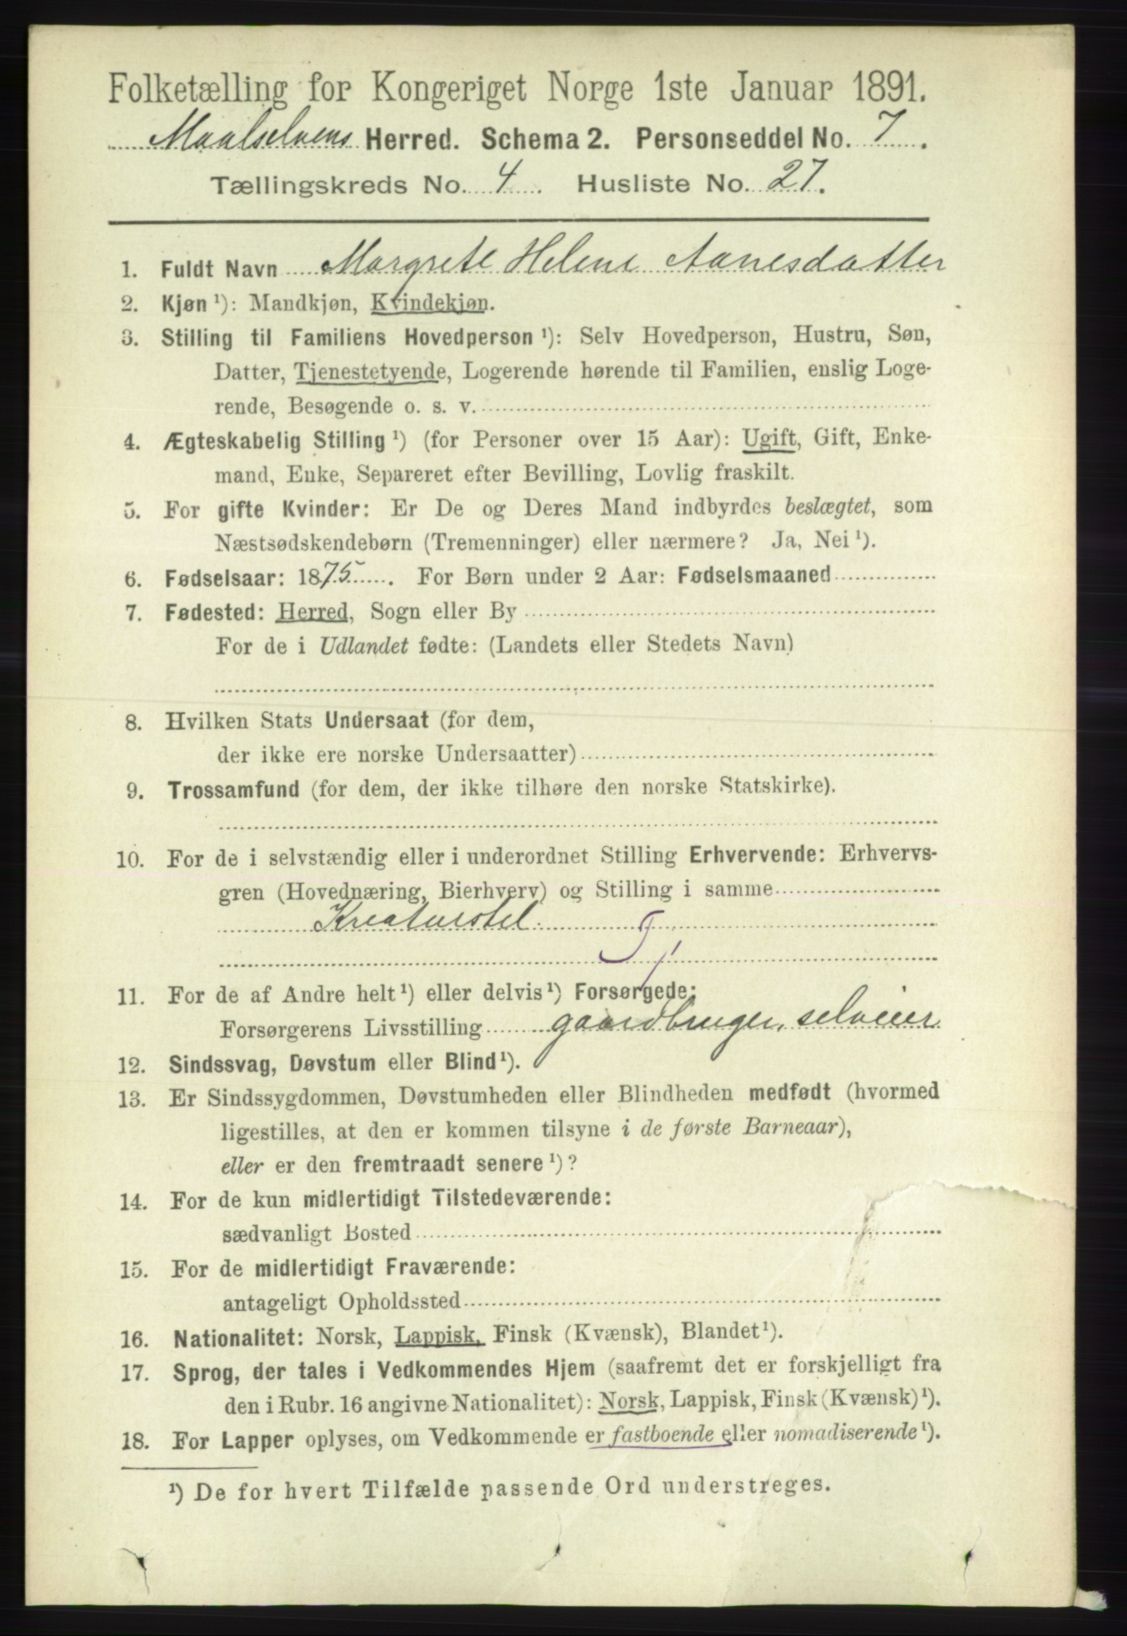 Folketælling for Kongeriget Norge 1ste Januar 1891.
Maalselvens Herred. Schema 2. Personseddel No. 7.
Tællingskreds No. 4. Husliste No. 27.
1. Fuldt Navn Margrete Helene Aanesdatter
2. Kjøn ¹): Mandkjøn, Kvindekjøn.
3. Stilling til Familiens Hovedperson ¹): Selv Hovedperson, Hustru, Søn,
Datter, Tjenestetyende, Logerende hørende til Familien, enslig Loge-
rende, Besøgende o. s. v.
4. Ægteskabelig Stilling ¹) (for Personer over 15 Aar): Ugift, Gift, Enke-
mand, Enke, Separeret efter Bevilling, Lovlig fraskilt.
5. For gifte Kvinder: Er De og Deres Mand indbyrdes beslægtet, som
Næstsødskendebørn (Tremenninger) eller nærmere? Ja, Nei ¹).
6. Fødselsaar: 1875. For Børn under 2 Aar: Fødselsmaaned
7. Fødested: Herred, Sogn eller By
For de i Udlandet fødte: (Landets eller Stedets Navn)
8. Hvilken Stats Undersaat (for dem,
der ikke ere norske Undersaatter)
9. Trossamfund (for dem, der ikke tilhøre den norske Statskirke).
10. For de i selvstændig eller i underordnet Stilling Erhvervende: Erhvervs-
gren (Hovednæring, Bierhverv) og Stilling i samme
Kreaturstel
11. For de af Andre helt ¹) eller delvis ¹) Forsørgede:
Forsørgerens Livsstilling gaardbruger, selveier
12. Sindssvag, Døvstum eller Blind ¹).
13. Er Sindssygdommen, Døvstumheden eller Blindheden medfødt (hvormed
ligestilles, at den er kommen tilsyne i de første Barneaar),
eller er den fremtraadt senere ¹)?
14. For de kun midlertidigt Tilstedeværende:
sædvanligt Bosted
15. For de midlertidigt Fraværende:
antageligt Opholdssted
16. Nationalitet: Norsk, Lappisk, Finsk (Kvænsk), Blandet ¹).
17. Sprog, der tales i Vedkommendes Hjem (saafremt det er forskjelligt fra
den i Rubr. 16 angivne Nationalitet): Norsk, Lappisk, Finsk (Kvænsk) ¹).
18. For Lapper oplyses, om Vedkommende er fastboende eller nomadiserende ¹).
¹) De for hvert Tilfælde passende Ord understreges.